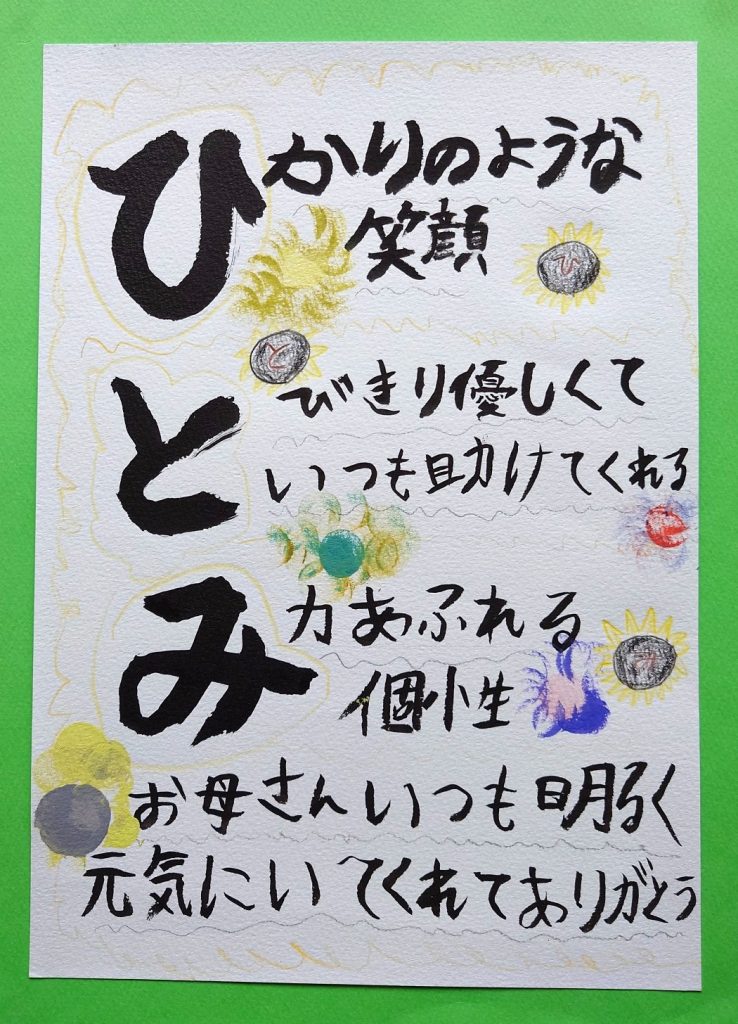 ひかりのような
笑顔
ひ
と
とびきり優しくて
いつも助けてくれる
み力あふれる
み
個性
お母さんいつも明るく
元気にいてくれてありがとう